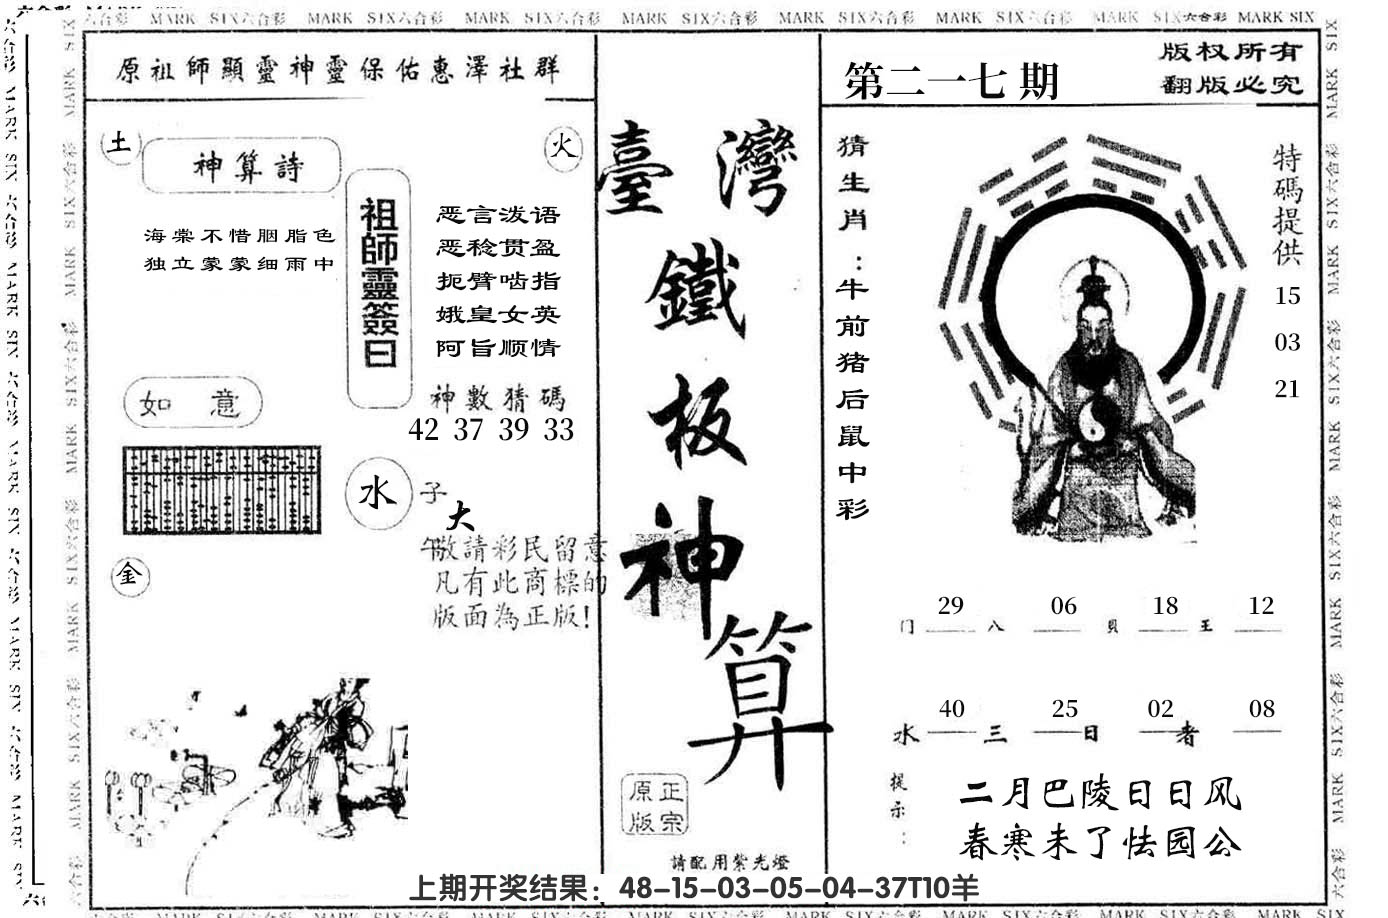 六合彩 MARK SIX六合彩 MARK SIX六合彩 MARK SIX六合彩 MARK SIX六合彩 MARK SIX六合彩 MARK SIX六合彩 MARK SIX六合彩 MARK SIX
原祖師顯靈神靈保佑惠澤社群
土
火
神算詩
海棠不惜胭脂色
独立蒙蒙细雨中
祖師靈簽曰
恶言泼语
恶稔贯盈
扼臂啮指
娥皇女英
阿旨顺情
神數猜碼
42 37 39 33
如 意
水
子
大
午
金
敬請彩民留意
凡有此商標的
版面為正版!
臺灣
鐵
板
神
算
正宗
原版
請配用紫光燈
第二一七期
版权所有
翻版必究
猜生肖:牛前猪后鼠中彩
特碼提供
15
03
21
29 06 18 12
门 八 贝 王
40 25 02 08
水 三 日 者
提示:
二月巴陵日日风
春寒未了怯园公
上期开奖结果:48-15-03-05-04-37T10羊